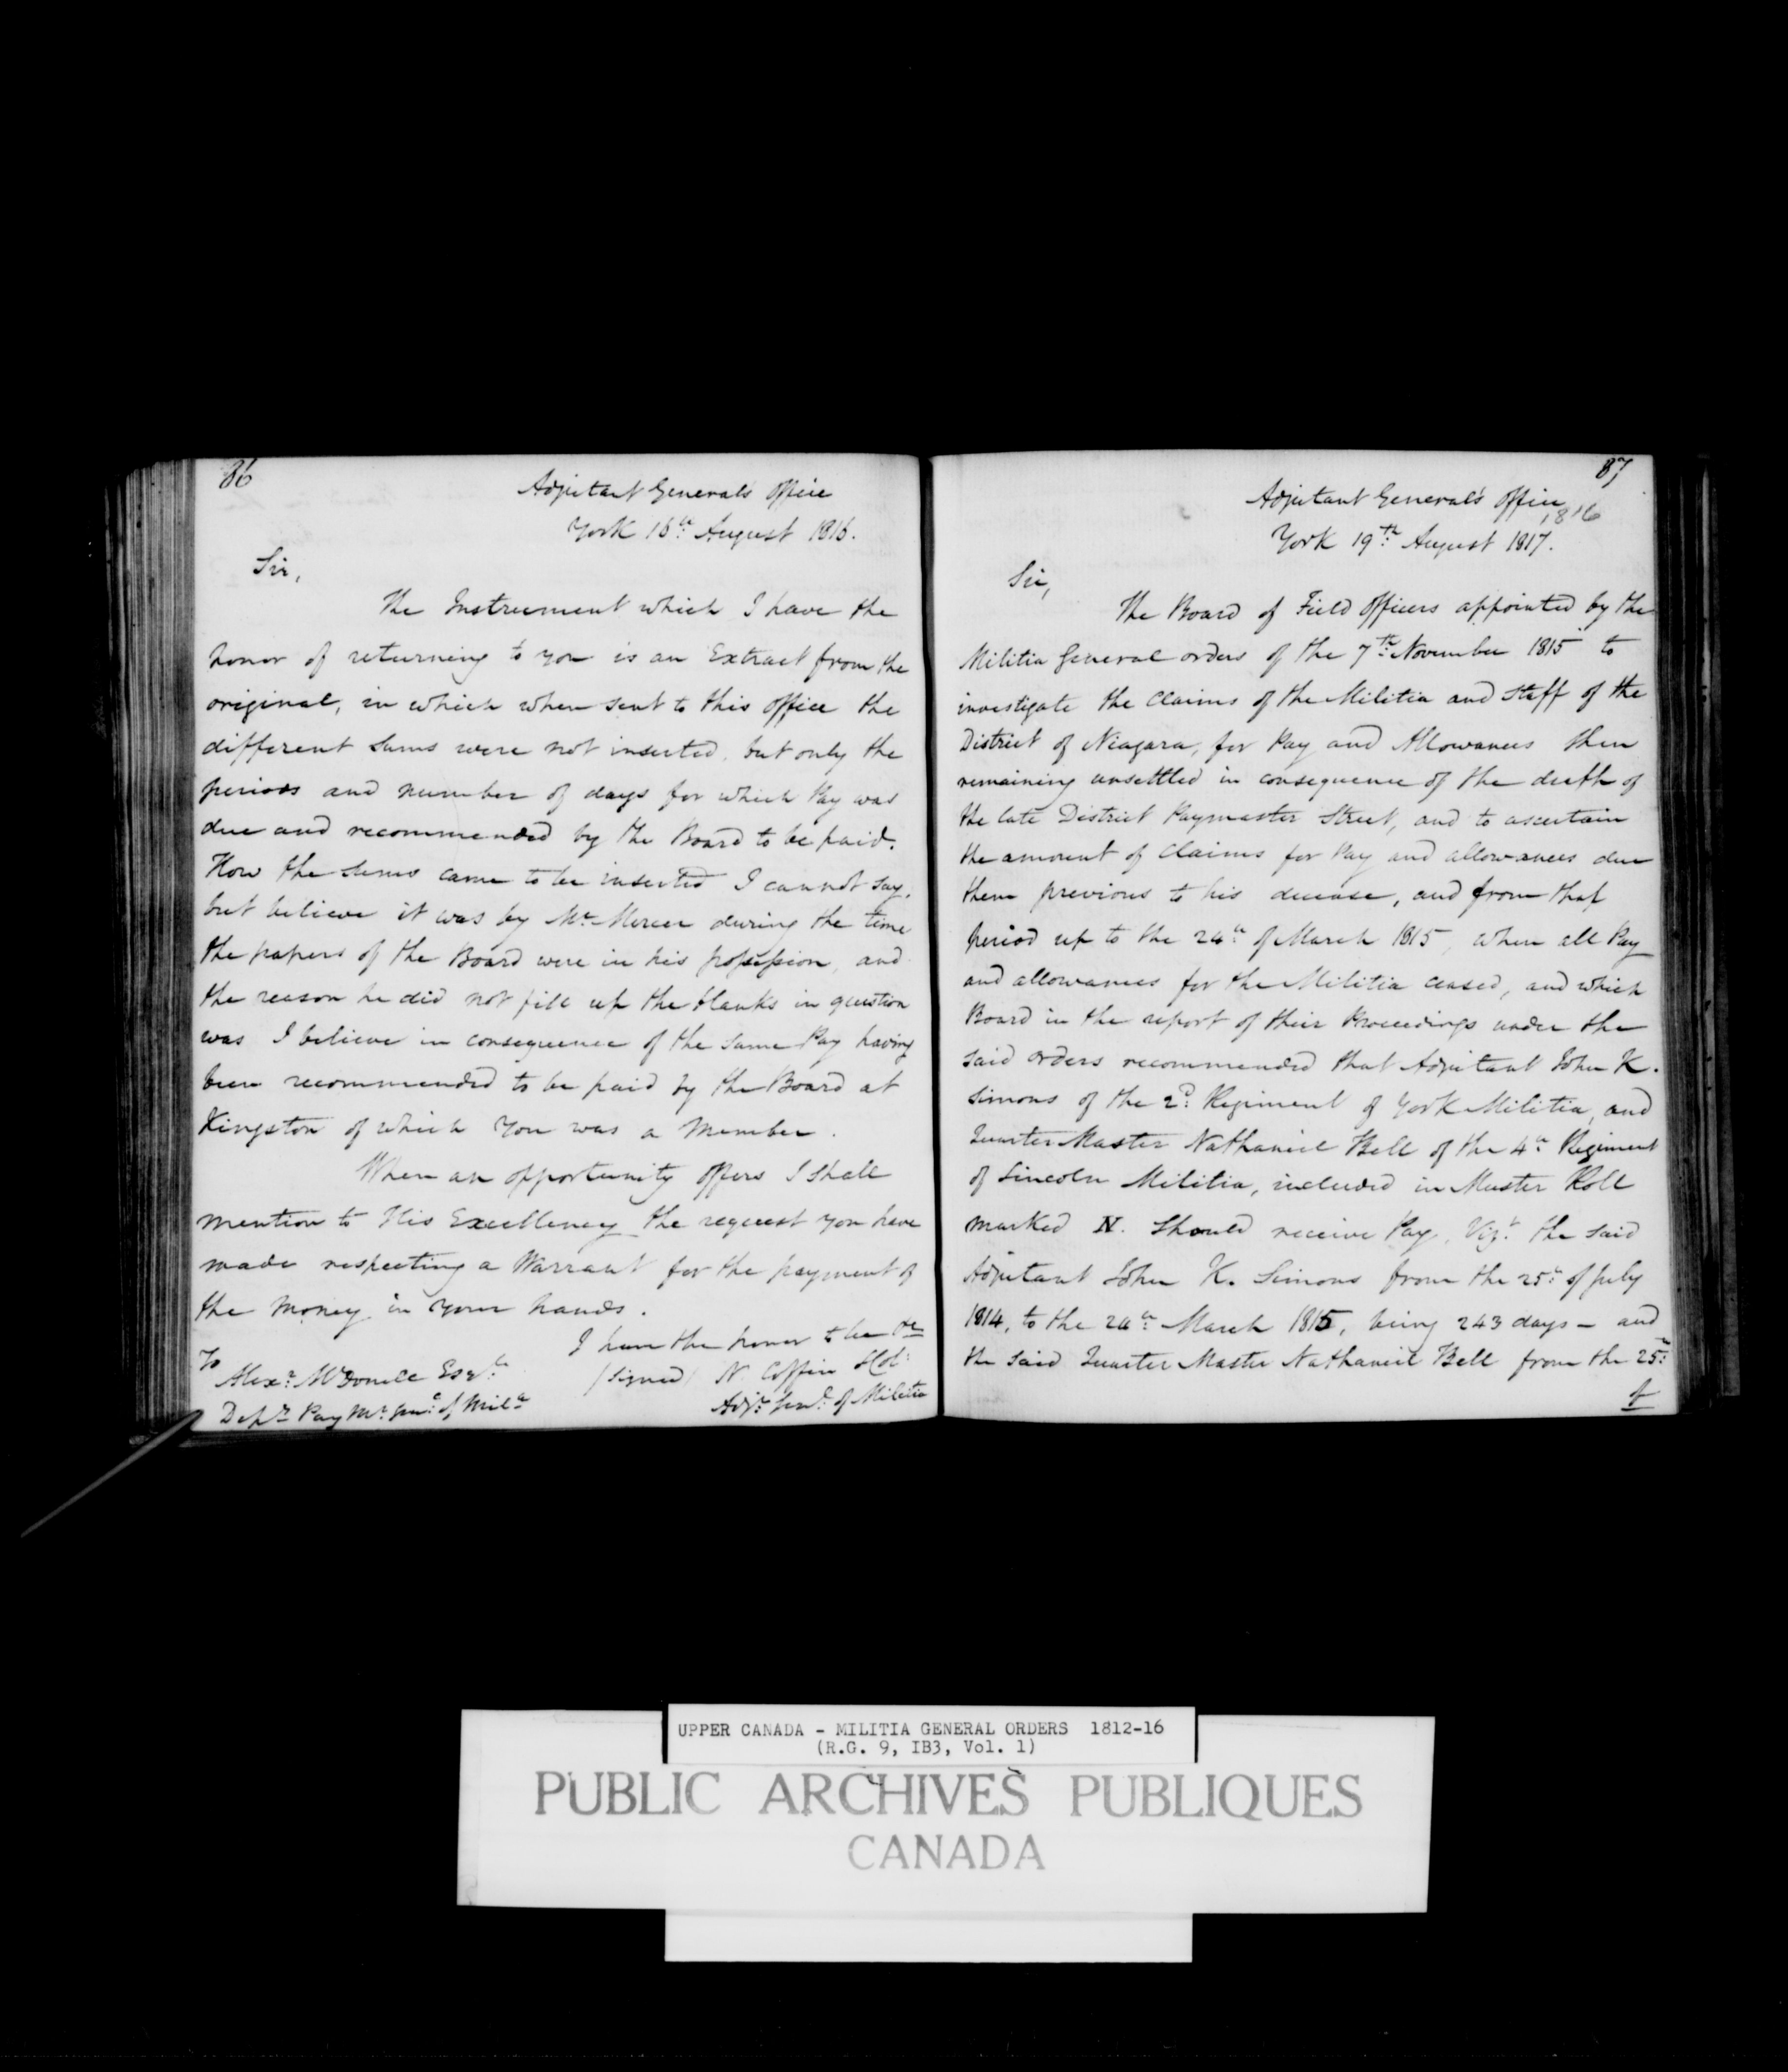 86
Adjutant General's Office
York 16th August 1816.
Sir,
The Instrument which I have the
honor of returning to you is an Extract from the
original, in which when sent to this office the
different sums were not inserted, but only the
periods and number of days for which Pay was
due and recommended by the Board to be paid.
How the sums came to be inserted I cannot say,
but believe it was by Mr. Mercer during the time
the papers of the Board were in his possession, and
the reason he did not fill up the blanks in question
was I believe in consequence of the same Pay having
been recommended to be paid by the Board at
Kingston of which You was a Member.
When an opportunity offers I shall
mention to His Excellency the request you have
made respecting a Warrant for the payment of
the Money in Your hands.
I have the honor to be &c
(Signed) N. Coffin Lt Col:
Adjt. Genl. of Militia
To
Alexr. McDonell Esqre.
Depy. Pay Mr. Genl. of Mila
87
Adjutant General's Office
1816
York 19th August 1817.
Sir,
The Board of Field Officers appointed by the
Militia General orders of the 7th November 1815 to
investigate the Claims of the Militia and Staff of the
District of Niagara, for Pay and Allowances then
remaining unsettled in consequence of the death of
the late District Paymaster Street, and to ascertain
the amount of Claims for Pay and allowances due
them previous to his decease, and from that
period up to the 24th of March 1815, when all Pay
and allowances for the Militia ceased, and which
Board in the report of their Proceedings under the
said orders recommended that Adjutant John K.
Simons of the 2d. Regiment of York Militia, and
Quarter Master Nathaniel Bell of the 4th Regiment
of Lincoln Militia, included in Muster Roll
marked N. Should receive Pay, Vizt. the said
Adjutant John K. Simons from the 25th of July
1814, to the 24th March 1815, being 243 days - and
the said Quarter Master Nathaniel Bell from the 25th
of
UPPER CANADA - MILITIA GENERAL ORDERS 1812-16
(R.G. 9, IB3, Vol. 1)
PUBLIC ARCHIVES PUBLIQUES
CANADA